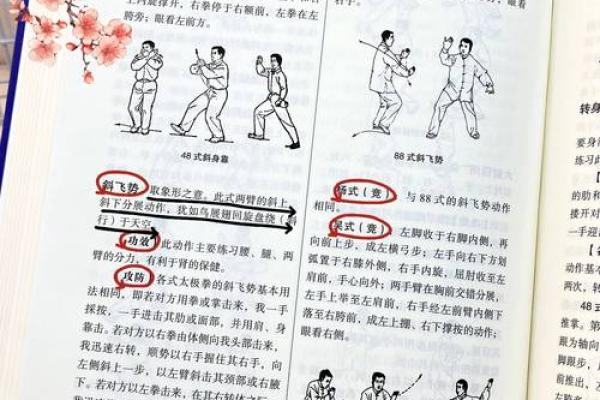 上内旋撑开，右拳停于右额前，左拳在左
胯旁；眼看左前方。
48 式斜身靠
斜飞势 取象形之意。此式两臂的斜上
斜下分展动作，犹如鸟展翅回旋盘绕（
行）于天空
功效 此动作主要练习腰、腿、两
臂的分力，有利于肾的保健。
攻防 各式太极拳的斜飞势基本用
法相同，即若对方用拳或掌击来，我一手
採按，一手进击其肋或面部，并用肩、身
靠击。若对方以右拳由体侧向我头部击来，
我迅速右转，顺势以右手握住其右手，向
左侧斜上一步，以左臂斜击其颈部或右腋
下。若对方以左拳击来，在其右转体之际
88 式斜飞势
杨式（竞） 与 88 式的斜飞势动作
相同。
吴式（竞） 左脚收于右脚内侧，再
向前上步，成左横弓步；左手向右下方划
弧置于右膝外侧，右手内旋，屈肘收至左
肩前，手心向外；两手臂在胸前交错分展，
左手上举至左肩前，右手经左臂内侧下
落至右胯前，成左上掤、右下撑按的动作；
眼看右前。
转身
要身
练习
【
的
搂开对
一手迎
动作基本
两次，转
48 式
推掌。第
跟为轴向
脚跟步，
前推出，